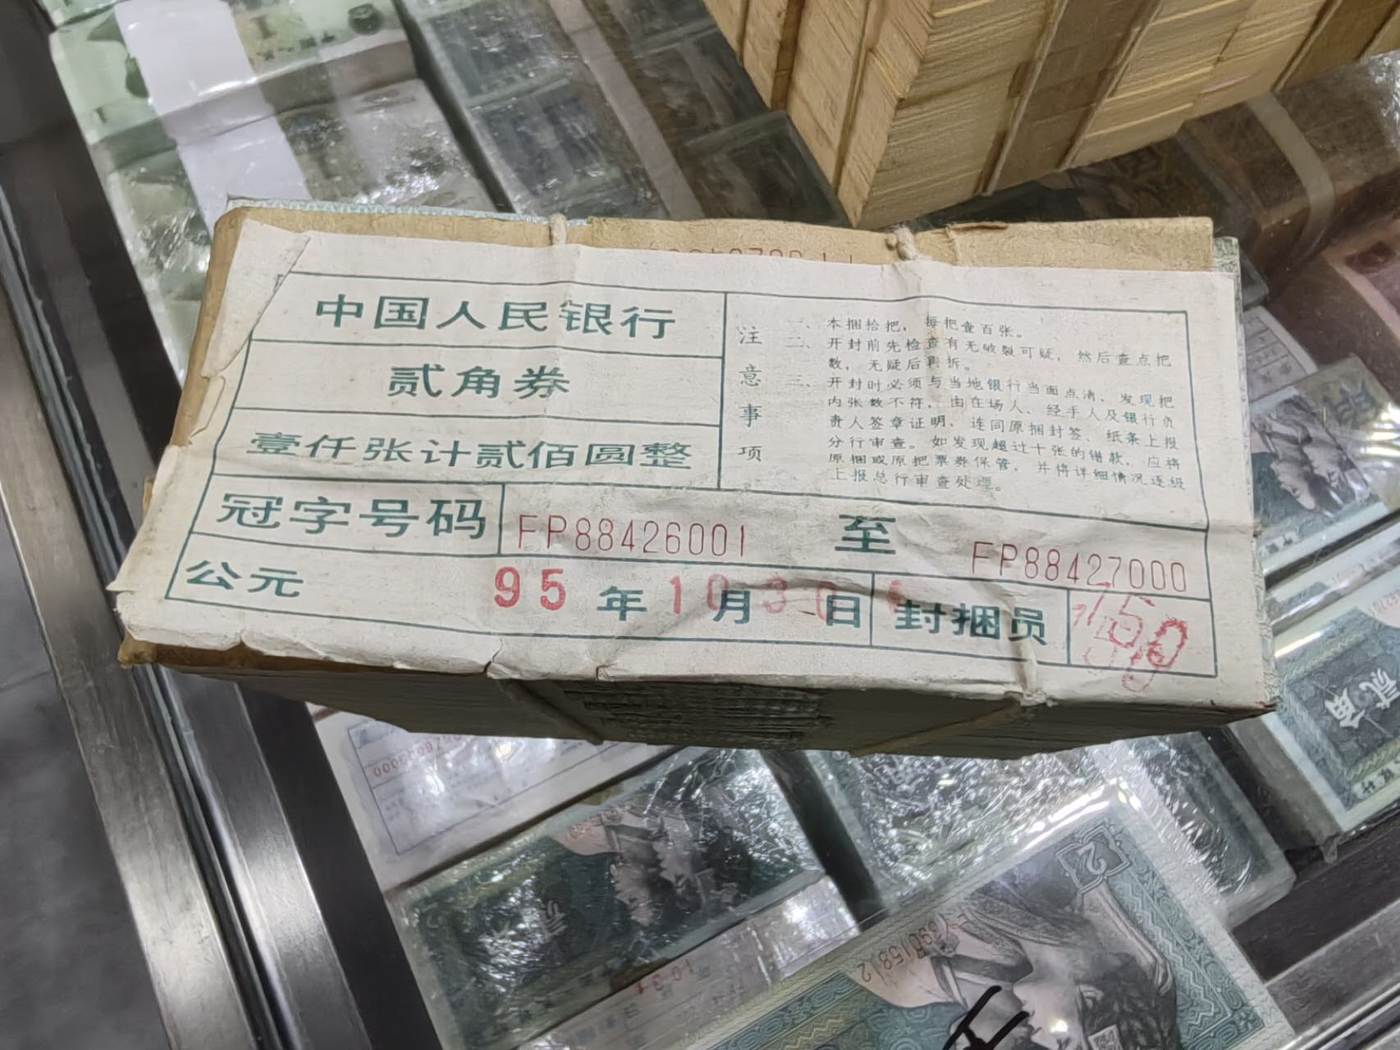 中国人民银行
贰角券
壹仟张计贰佰圆整
注意事项
一、本捆拾把，每把壹百张。
二、开封前先检查有无破裂可疑，然后查点把
数，无疑后再拆。
三、开封时必须与当地银行当面点清，发现把
内张数不符，由在场人、经手人及银行负
责人签章证明，连同原捆封签、纸条上报
分行审查。如发现超过十张的错款，应将
原捆或原把票券保管，并将详细情况逐级
上报总行审查处理。
冠字号码 FP88426001 至 FP88427000
公元 95 年 10 月 30 日 封捆员
贰角
2